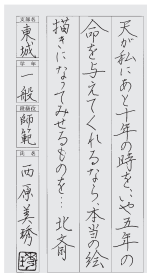 天が私にあと十年の時を、いや五年の
命を与えてくれるなら、本当の絵
描きになってみせるものを… 北斎
支部名
東城
学年
一般
段級位
師範
氏名
西原美琇